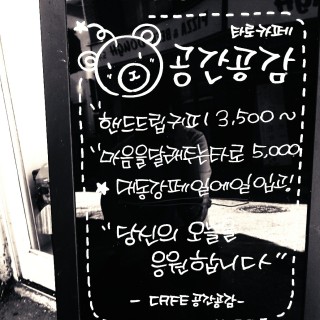 타로카페
공간공감
"핸드드립커피 1 3,500 ~
"마음을달래주는타로 5,000
"당신의 오늘을
응원합니다"
- CAFE 공간공감 -